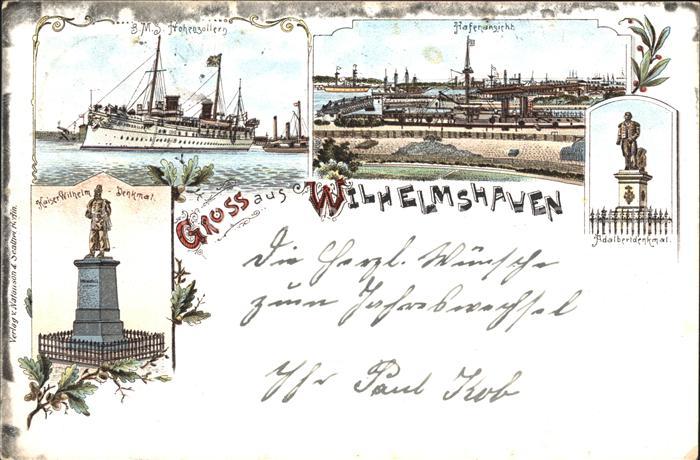 S.M.S. Hohenzollern
Hafenansicht
Kaiser Wilhelm Denkmal.
GRUSS aus WILHELMSHAVEN
Adalbertdenkmal.
Die Herzl. Wünsche
zum Jahreswechsel
Ihr Paul Kob
Verlag v. &